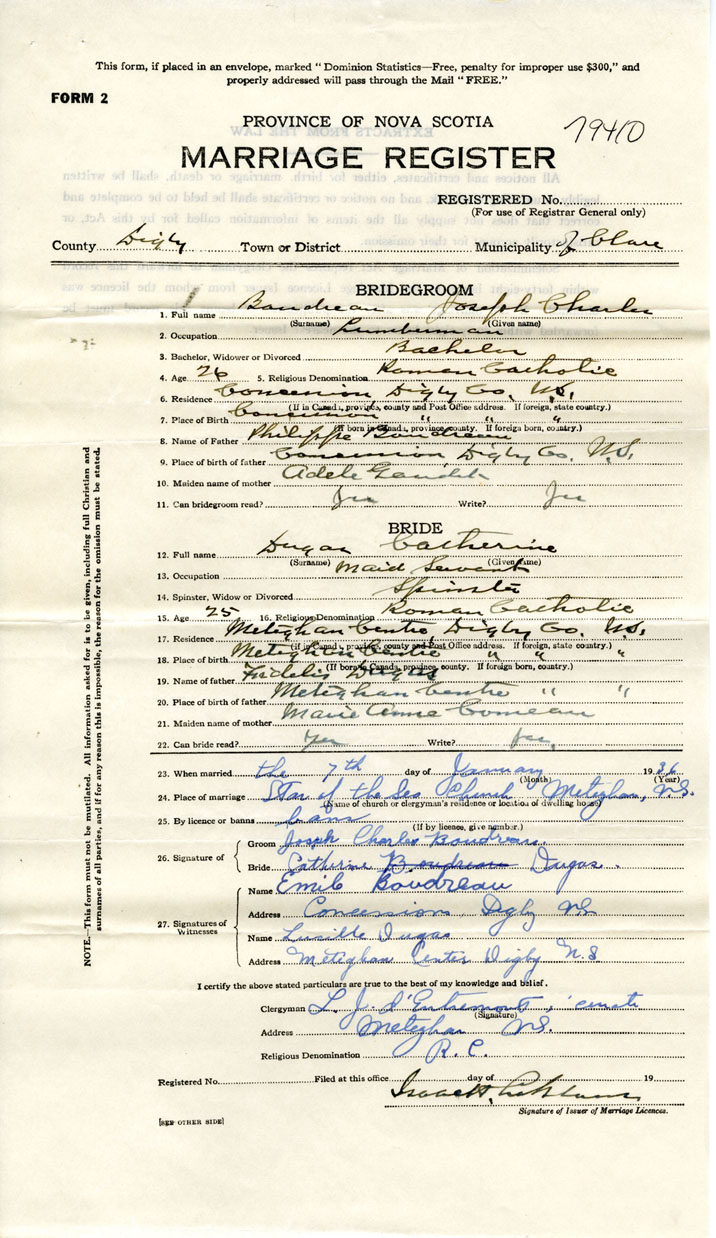 This form, if placed in an envelope, marked "Dominion Statistics—Free, penalty for improper use $300," and
properly addressed will pass through the Mail "FREE."
FORM 2
PROVINCE OF NOVA SCOTIA
79410
MARRIAGE REGISTER
REGISTERED No.
(For use of Registrar General only)
County Digby Town or District Municipality of Clare
BRIDEGROOM
1. Full name Boudreau Joseph Charles
(Surname) (Given name)
2. Occupation Lumberman
3. Bachelor, Widower or Divorced Bachelor
4. Age 26 5. Religious Denomination Roman Catholic
6. Residence Concession Digby Co. N.S.
(If in Canada, province, county and Post Office address. If foreign, state country.)
7. Place of Birth Concession " " "
(If born in Canada, province, county. If foreign born, country.)
8. Name of Father Philippe Boudreau
9. Place of birth of father Concession Digby Co. N.S.
10. Maiden name of mother Adele
11. Can bridegroom read? Yes Write? Yes
BRIDE
12. Full name Dugas Catherine
(Surname) (Given name)
13. Occupation Maid Servant
14. Spinster, Widow or Divorced Spinster
15. Age 25 16. Religious Denomination Roman Catholic
17. Residence Meteghan Centre Digby Co. N.S.
(If in Canada, province, county and Post Office address. If foreign, state country.)
18. Place of birth Meteghan Centre " " "
(If born in Canada, province, county. If foreign born, country.)
19. Name of father Fidelis Dugas
20. Place of birth of father Meteghan Centre " "
21. Maiden name of mother Marie Anne Comeau
22. Can bride read? Yes Write? Yes
23. When married the 7th day of January 1936
(Month) (Year)
24. Place of marriage Star of the Sea Church Meteghan, N.S.
(Name of church or clergyman's residence or location of dwelling house)
25. By licence or banns bans
(If by licence, give number.)
26. Signature of
Groom Joseph Charles Boudreau
Bride Catherine Boudreau Dugas.
27. Signatures of Witnesses
Name Emile Boudreau
Address Concession Digby NS
Name Lucille Dugas
Address Meteghan Center Digby N.S
I certify the above stated particulars are true to the best of my knowledge and belief.
Clergyman L. J. d'Entremont, curate
(Signature)
Address Meteghan NS.
Religious Denomination R. C.
Registered No. Filed at this office day of 19
Signature of Issuer of Marriage Licences.
[SEE OTHER SIDE]
NOTE.—This form must not be mutilated. All information asked for is to be given, including full Christian and
surnames of all parties, and if for any reason this is impossible, the reason for the omission must be stated.